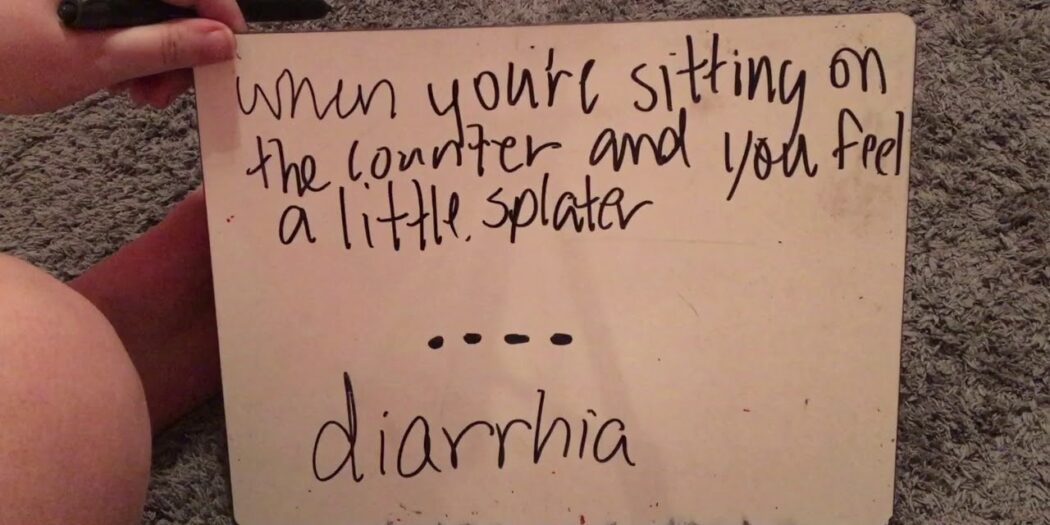 when you're sitting on
the counter and you feel
a little splater
....
diarrhia